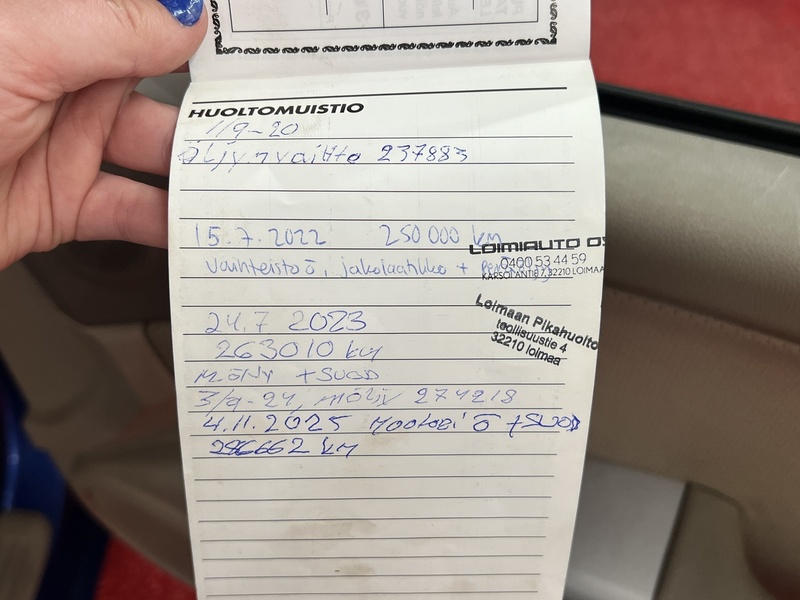 HUOLTOMUISTIO
1/9-20
Öljynvaihto 237883
15.7.2022 250 000 km
LOIMIAUTO OY
0400 53 44 59
Vaihteistoö, jakolaatikko +
KARSOLANTIE 7, 32210 LOIMAA
24.7 2023
Loimaan Pikahuolto
teollisuustie 4
32210 loimaa
263010 km
MÖljy +SUOD
3/9-24, möljy 274218
4.11.2025 Moottori Ö +SUOD
286662 km